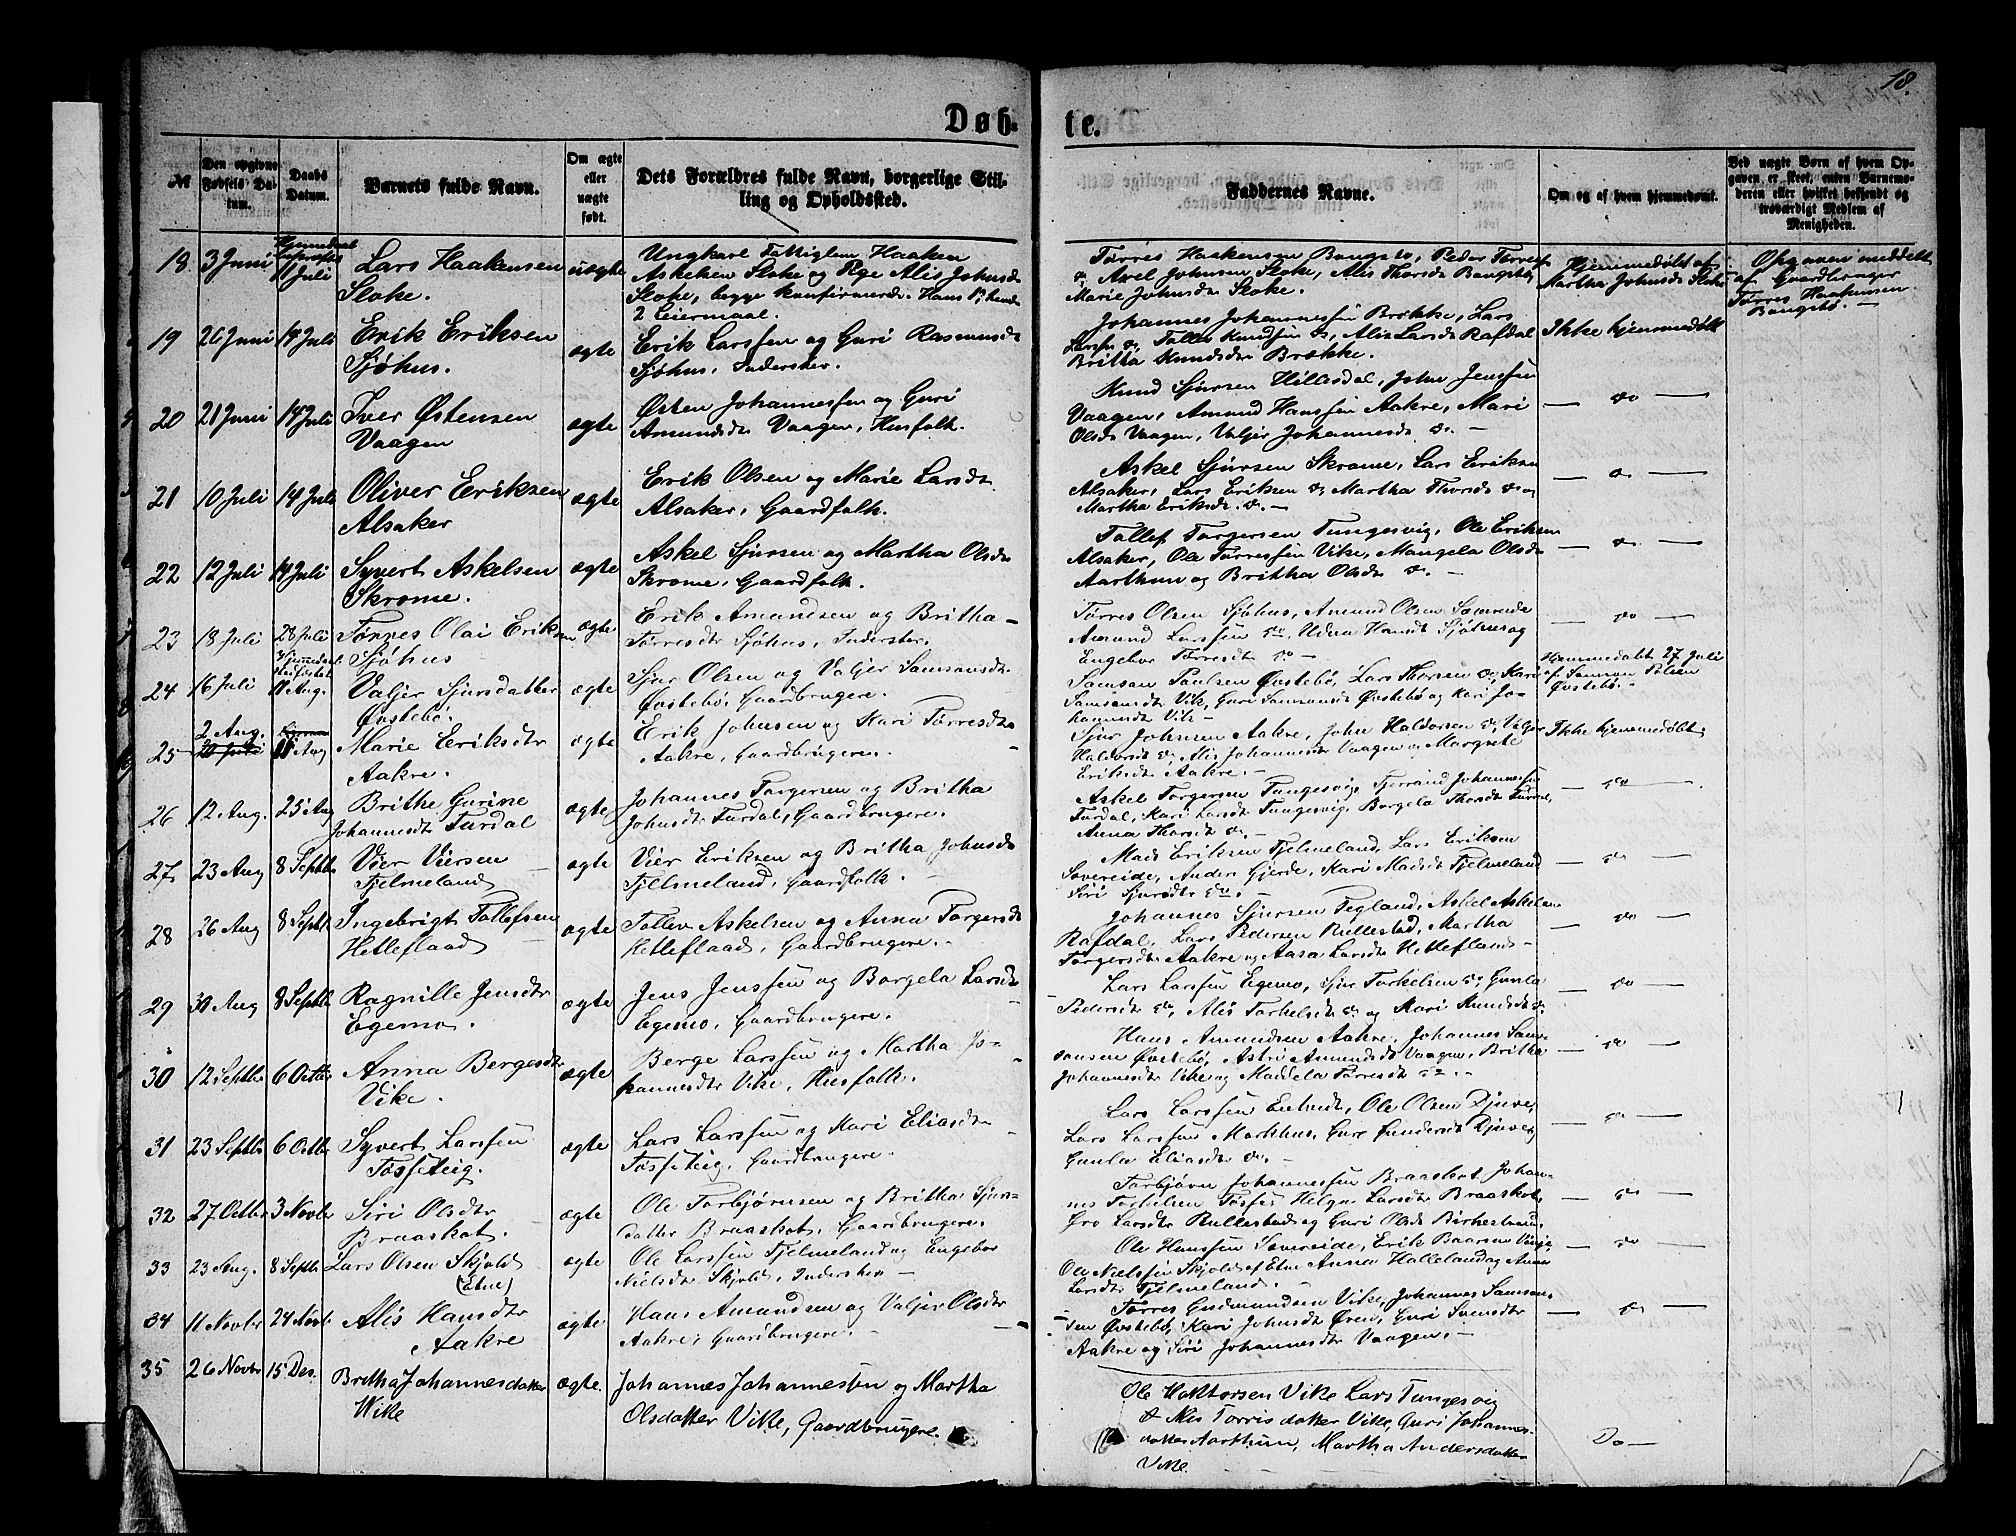 18.
Døb-
te.
№
Den opgivne Fødsels Datum.
Daabs Datum.
Barnets fulde Navn.
Om ægte eller uægte født.
Dets Forældres fulde Navn, borgerlige Stilling og Opholdssted.
Faddernes Navne.
Om og af hvem hjemmedøbt.
Ved uægte Børn af hvem Opgaven er skeet, enten Barnemoderen eller hvilket bekjendt og troværdigt Medlem af Menigheden.
18 3 Juni 11 Juli Lars Haakensen uægte Ungkarl Fattiglem Haaken
Stoke. Askelsen Stoke og Pige Alis Johnsdr
Stoke, begge konfirmerede. Hans
2 Leiermaal.
Tørres Haakensen Bangsbø, Peder
Axel Johnsen Stoke, Alis Thorsdr Bangsbø,
Marie Johnsdr Stoke.
Hjemmedøbt af
Martha Johnsdr Stoke
Opgaven meddelt
af Gaardbruger
Tørres Haakensen
Bangsbø.
19 26 Juni 14 Juli Erik Eriksen ægte Erik Larssen og Guri Rasmusdr
Sjøhus. Sjøhus, Inderster.
Johannes Johannessen Brekke, Lars
Larssen do, Tollef Knudssen do, Alis Larsdr Rafdal
Britha Knudsdr Brekke.
Ikke hjemmedøbt
20 21 Juni 14 Juli Iver Østensen ægte Østen Johannessen og Guri
Vaagen Amundsdr Vaagen, Husfolk.
Knud Sjursen Hillesdal, John Jenssen
Vaagen, Amund Hanssen Aakre, Mari
Olsdr Vaagen, Valjer Johannesdr do. —
— do —
21 10 Juli 14 Juli Oliver Eriksen ægte Erik Olsen og Marie Larsdr
Alsaker Alsaker, Gaardfolk.
Askel Sjursen Skrome, Lars Eriksen
Alsaker, Lars Eriksen do, Martha Thorsdr do og
Martha Eriksdr do. —
— do —
22 12 Juli 14 Juli Syvert Askelsen ægte Askel Sjursen og Martha Olsdr
Skrome. Skrome, Gaardfolk.
Tollef Torgersen Tungesvig, Ole Eriksen
Alsaker, Ole Tørressen Vike, Mangela Olsdr
Aarthun og Britha Olsdr do. —
— do —
23 18 Juli 28 Juli Tørres Olai Eriksen ægte Erik Amundsen og Britha
Sjøhus Tørresdr Sjøhus, Inderster.
Tørres Olsen Sjøhus, Amund Olsen Sævereide
Amund Larssen do, Udna Hansdr Sjøhus og
Engebor Tørresdr do
— do —
24 16 Juli 11 Aug. Valjer Sjursdatter ægte Sjur Olsen og Valjer Samsonsdr
Øvstebø. Øvstebø, Gaardbrugere.
Samson Paulsen Øvstebø, Lars Thorsen do, Kari
Samsonsdr Vik, Guri Samsonsdr Øvstebø og Kari Jo-
hannesdr Vik —
Hjemmedøbt 27 Juli
af Samson Polsen
Øvstebø. —
25 2 Aug. 11 Aug Marie Eriksdtr ægte Erik Johnsen og Kari Tørresdr
Aakre. Aakre, Gaardbrugere.
Sjur Johnsen Aakre, John Haldorsen do, Valjer
Haldorsdr do, Alis Johannesdr Vaagen og Margrete
Eriksdr Aakre. —
Ikke hjemmedøbt.
26 12 Aug. 25 Aug Brithe Gurine ægte Johannes Torgersen og Britha
Johannesdr Furdal Johnsdr Furdal, Gaardbrugere.
Askel Torgersen Tungesvig, Johannessen
Furdal, Kari Larsdr Tungesvig, Borgela Thorsdr Furdal,
Anna Thorsdr do. —
— do —
27 23 Aug 8 Septbr Vier Viersen ægte Vier Eriksen og Britha Johnsdr
Fjelmeland Fjelmeland, Gaardfolk.
Mads Eriksen Fjelmeland, Lars Eriksen
Sævereide, Anders Gjerde, Kari Madsdr Fjelmeland
Siri Sjursdtr do —
— do —
28 26 Aug 8 Septbr Ingebrigt Tollefsen ægte Tollev Askelsen og Anna Torgersdr
Hetleflaad Hetleflaad, Gaardbrugere.
Johannes Sjursen Tegland, Askel Askelsen
Rafdal, Lars Pedersen Rullestad, Martha
Torgersdr Aakre og Aasa Larsdr Hetleflaad —
— do —
29 31 Aug 8 Septbr Ragnille Jensdtr ægte Jens Jenssen og Borgela Larsdr
Egemo. Egemo, Gaardbrugere.
Lars Larssen Egemo, Sjur Torkelsen do, Gunla
Pedersdr do, Alis Torkelsdr do og Kari Knudsdr do
— do —
30 12 Septbr 6 Octbr Anna Bergesdtr ægte Berge Larssen og Martha Jo-
Vike. hannesdtr Vike, Husfolk.
Hans Amundsen Aakre, Johannes Sam-
sonsen Øvstebø, Astri Amundsdr Vaagen, Britha
Johannesdtr Vike og Maddela Tørresdr do. —
— do —
31 23 Septbr 6 Octbr Syvert Larssen ægte Lars Larssen og Kari Eliasdr
Fosseteig. Fosseteig, Gaardbrugere.
Lars Larssen, Ole Olsen Djuve,
Lars Larssen Markhus, Guri Gundersdr Djuve,
Gunla Eliasdtr do. —
— do —
32 27 Octbr 3 Novbr Siri Olsdtr ægte Ole Torbjørnsen og Britha Sjurs-
Braaskot. datter Braaskot, Gaardbrugere.
Torbjørn Johannessen Braaskot, Johan-
nes Torkelsen Fosse, Helga Larsdtr Braaskot,
Gro Larsdtr Rullestad og Guri Olsdr
— do —
33 23 Aug. 8 Septbr Lars Olsen Skjold ægte Ole Larssen Fjelmeland og Engebor
(Etne) Nielsdr Skjold, Indersher —
Ole Hanssen Sævereide, Erik Baarsen Vinje,
Ole Nielssen Skjold af Etne Anna Halleland og Anna
Larsdtr Fjelmeland.
— do —
34 11 Novbr 24 Novb Alis Hansdtr ægte Hans Amundsen og Valjer Olsdtr
Aakre Aakre, Gaardbrugere. —
Tørres Gudmundsen Vike, Johannes Samson-
sen Øvstebø, Kari Johnsdr Øren, Guri Svensdtr
Aakre og Siri Johannesdtr Vaagen. —
— do —
35 26 Novbr 15 Des. Britha Johannesdatter ægte. Johannes Johannessen og Martha
Wike Olsdatter Vike, Gaardbrugere.
Ole Halktorsen Vike Lars Tungesvig
& Alis Torrisdatter Vike, Guri Johannes-
datter Aarthun, Martha Andersdatter
Vike.
Do —